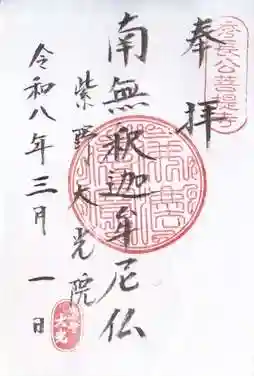 秀長公菩提寺
奉拝
南無釈迦牟尼仏
紫野大光院
令和八年三月一日